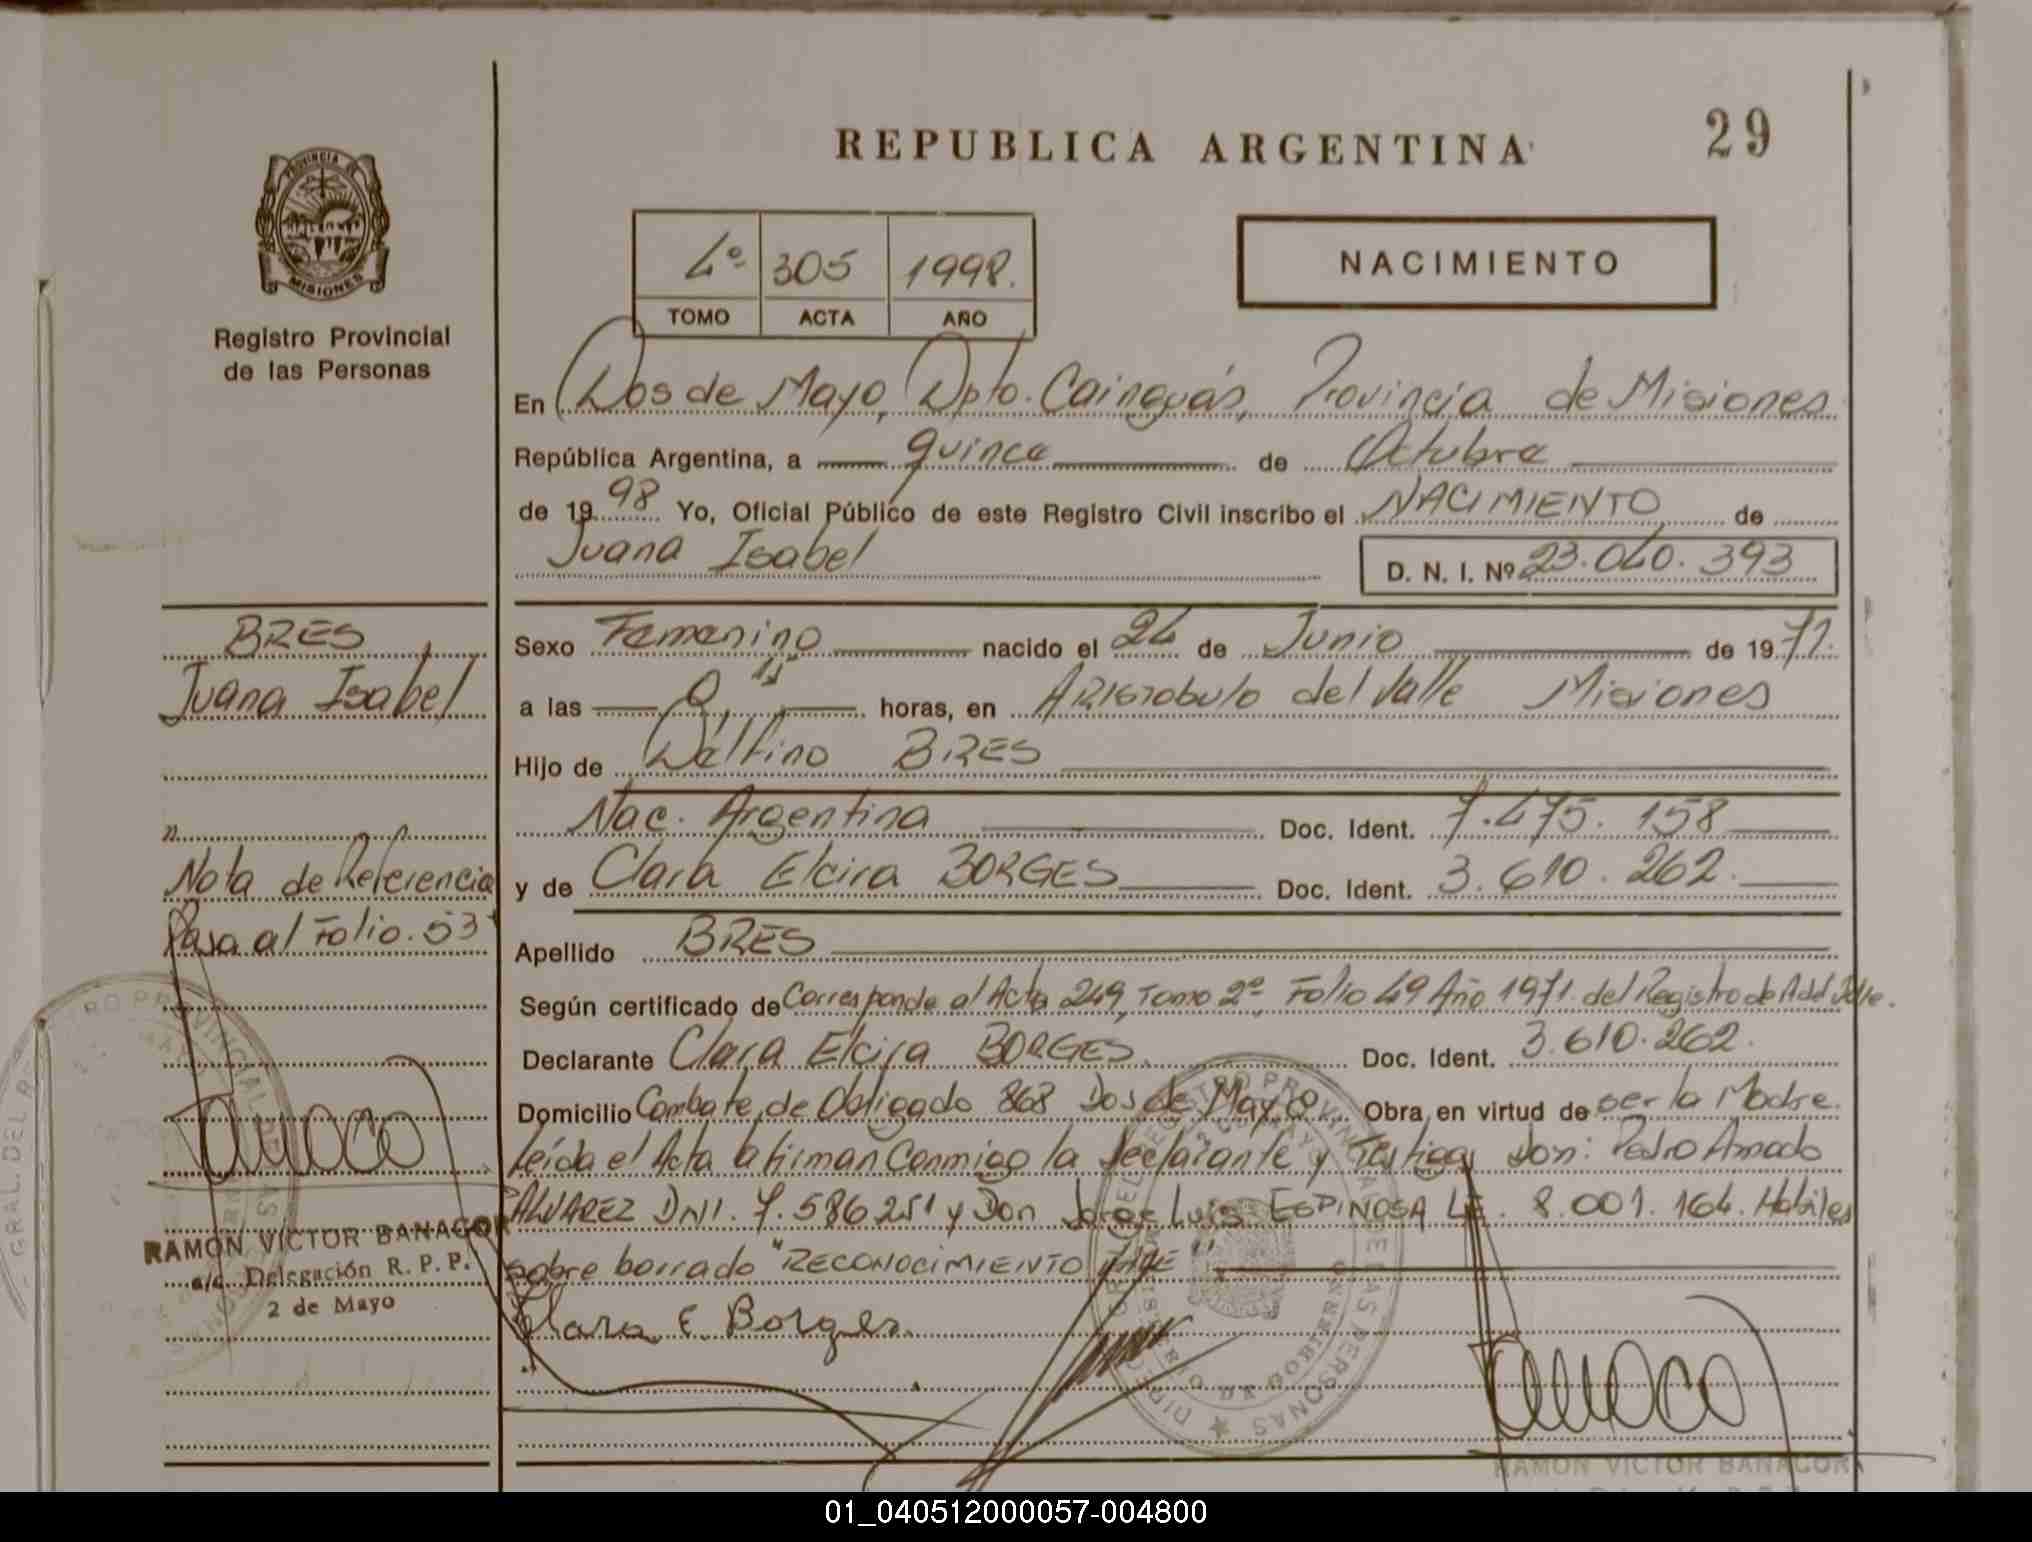 REPUBLICA ARGENTINA
29
PROVINCIA DE
MISIONES
Registro Provincial
de las Personas
4º 305 1998.
TOMO ACTA AÑO
NACIMIENTO
En Dos de Mayo, Dpto. Cainguás, Provincia de Misiones
República Argentina, a quince de Octubre
de 1998 Yo, Oficial Público de este Registro Civil inscribo el NACIMIENTO de
Juana Isabel D. N. I. Nº 23.040.393
BRES
Juana Isabel
Sexo Femenino nacido el 24 de Junio de 1971.
a las 0,15 horas, en Aristobulo del Valle Misiones
Hijo de Delfino BRES
Nac. Argentina Doc. Ident. 7.475.158
y de Clara Elcira BORGES Doc. Ident. 3.610.262.
Apellido BRES
Nota de Referencia
Pasa al Folio. 53
Según certificado de Corresponde al Acta 249, Tomo 2º Folio 49 Año 1971. del Registro de A del Valle.
Declarante Clara Elcira BORGES. Doc. Ident. 3.610.262.
Domicilio Combate de Obligado 868 Dos de Mayo Obra en virtud de ser la Madre.
Leída el Acta la firman Conmigo la declarante y Testigos Don: Pedro Amado
ALVAREZ DNI. 7.586251 y Don Jorge Luis ESPINOSA LE. 8.001.164. Habiles
sobre borrado "RECONOCIMIENTO
Clara E. Borges.
RAMON VICTOR BANACOR
a/c. Delegación R. P. P.
2 de Mayo
RAMON VICTOR BANACOR
01_040512000057-004800